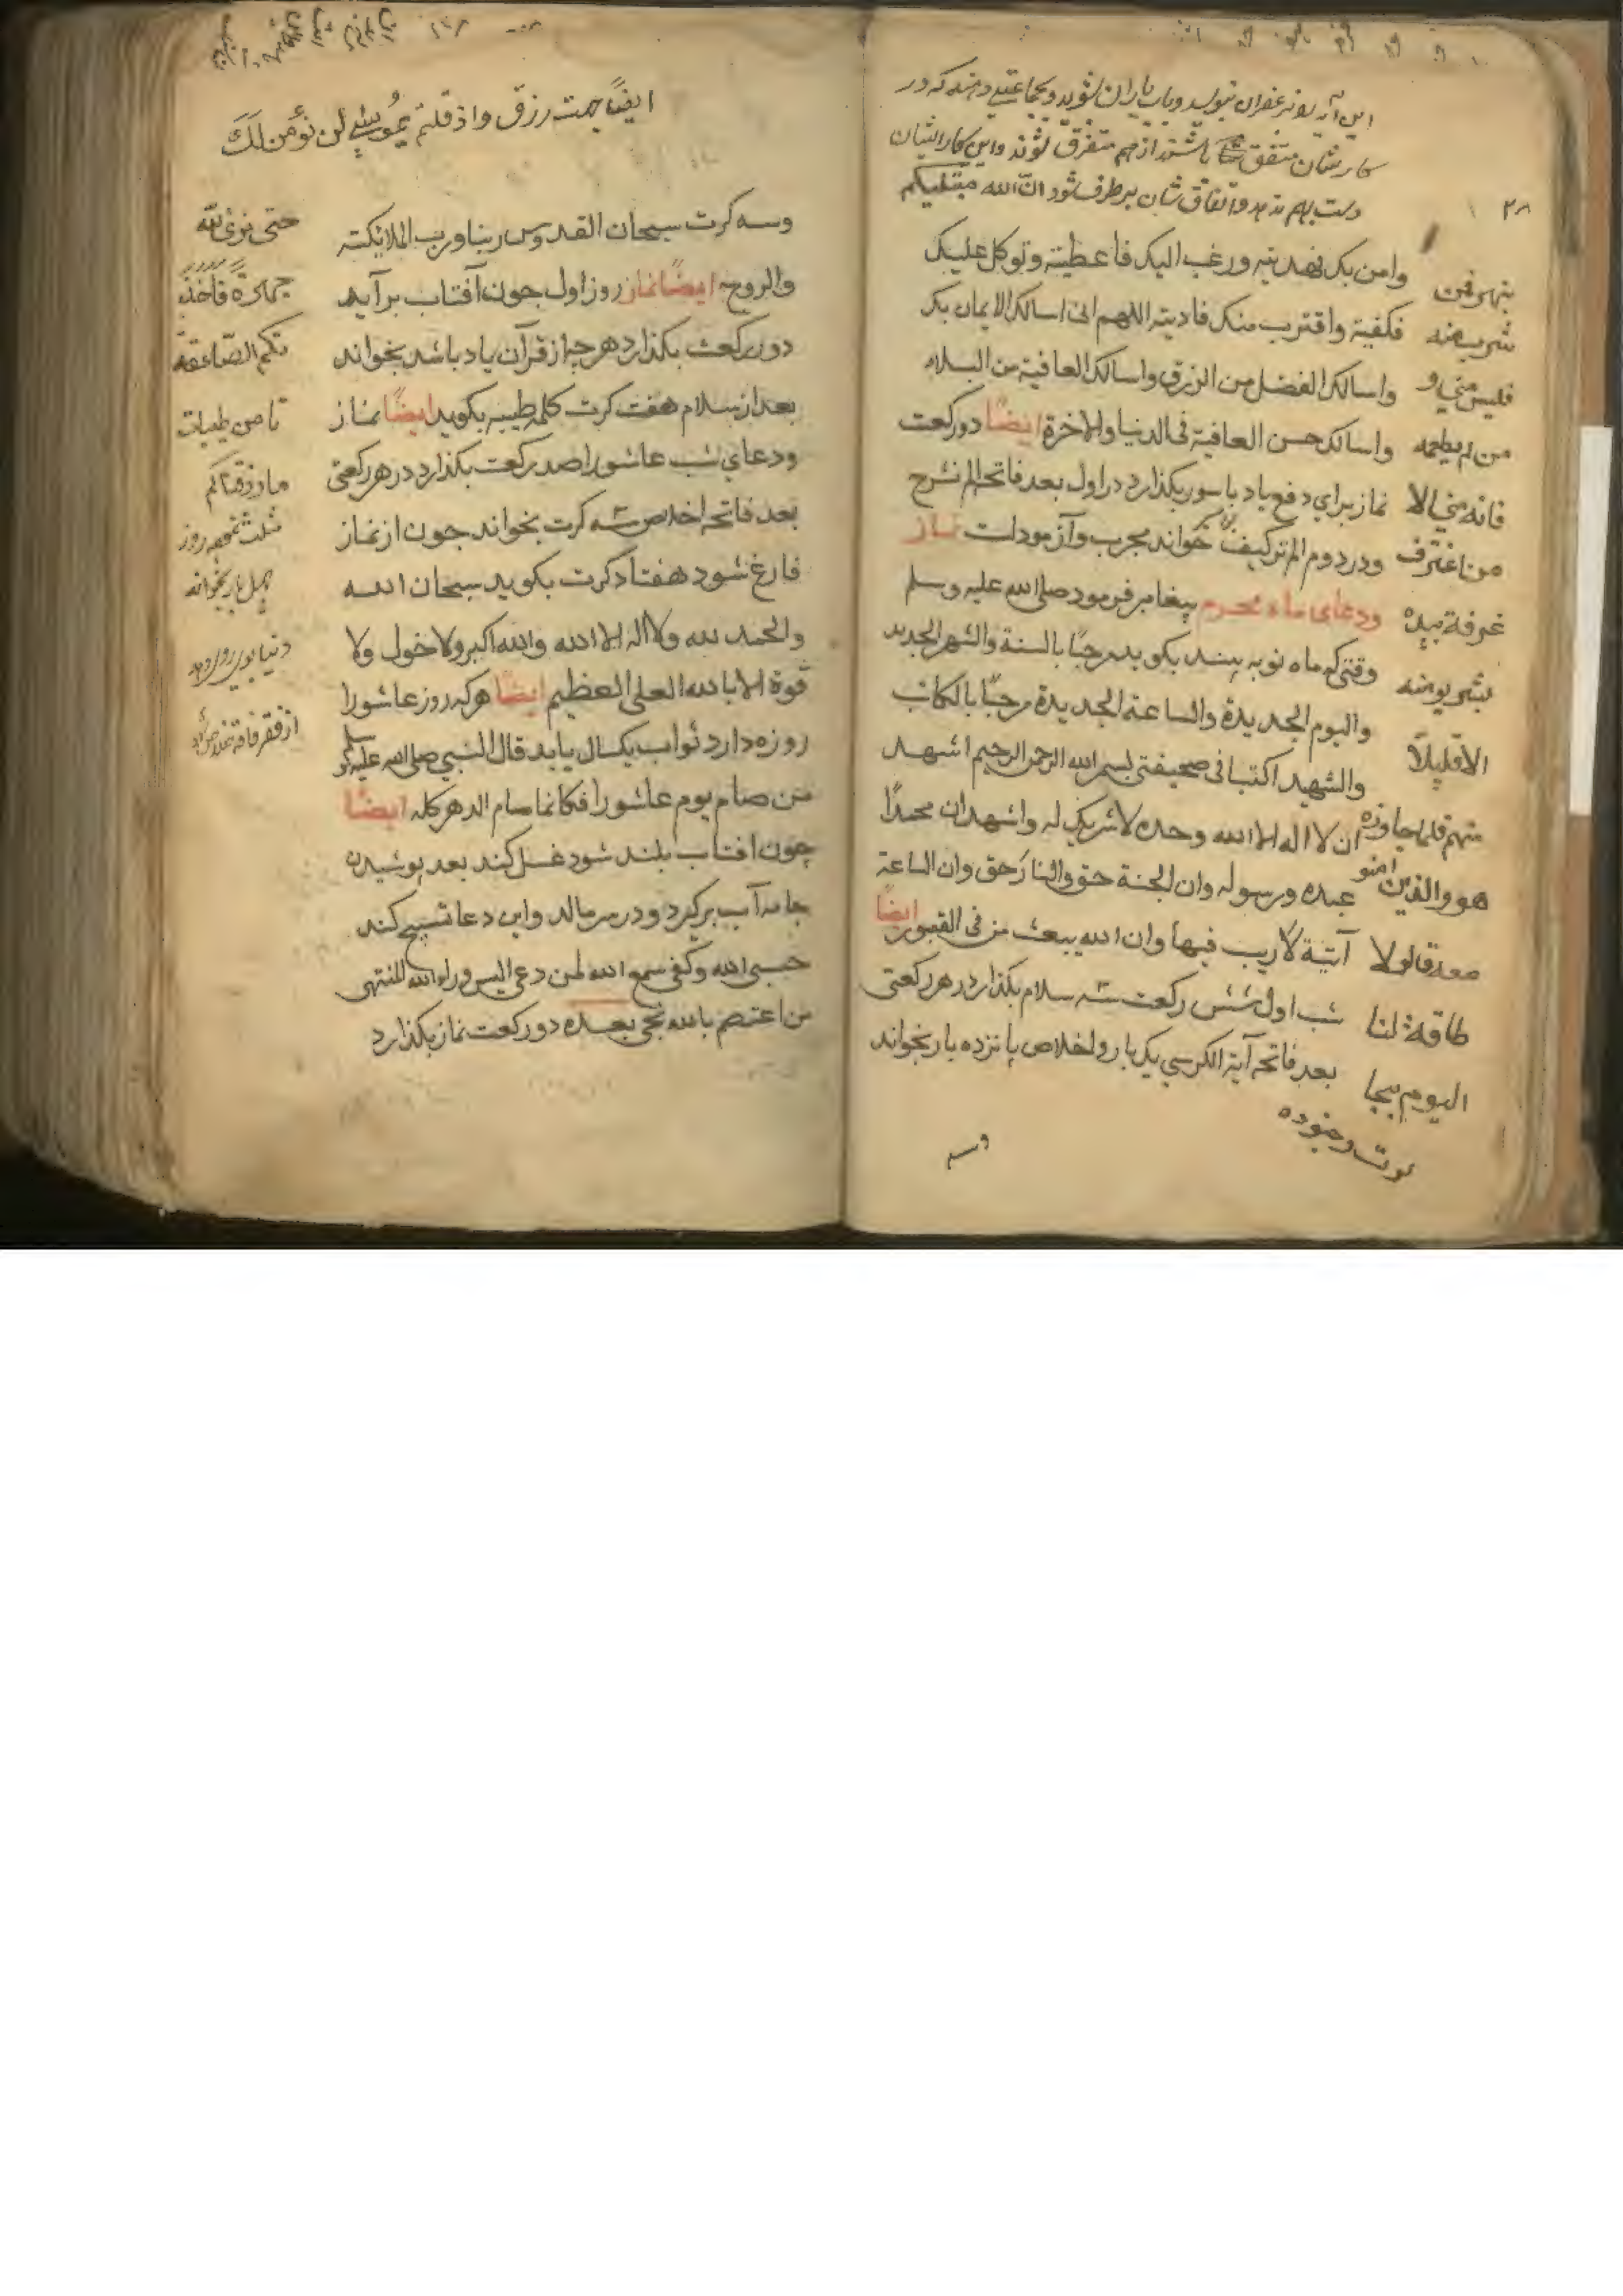 این آیه بزعفران بنویسد و بآب باران بشوید و بجماعتی دهند که در
کار شان متفق باشند از هم متفرق شوند و این کار ایشان
دست بهم ندهد و اتفاق شان برطرف شود ان الله مبتلیکم
۲۸
وامن بک فهدیته ورغب الیک فاعطیته وتوکل علیک
فکفیته واقترب منک فادیته اللهم انی اسالک الایمان بک
واسالک الفضل من الرزق واسالک العافیة من البلاء
واسالک حسن العافیة فی الدنیا والاخرة ایضًا دو رکعت
نماز برای دفع باد باسور بکذارد در اول بعد فاتحه الم نشرح
ودر دوم الم ترکیف بخواند مجرب وآزمودست نماز
ودعای ماه محرم پیغامبر فرمود صلی الله علیه وسلم
وقتی که ماه نو به بیند بکوید مرحبًا بالسنة والشهر الجدید
والیوم الجدیدة والساعة الجدیدة مرحبًا بالکاتب
والشهید اکتبا فی صحیفتی بسم الله الرحمن الرحیم اشهد
ان لا اله الا الله وحده لا شریک له واشهد ان محمدًا
عبده ورسوله وان الجنة حق والنار حق وان الساعة
آتیة لا ریب فیها وان الله یبعث من فی القبور ایضًا
شب اول شش رکعت سه سلام بکذارد در هر رکعتی
بعد فاتحه آیة الکرسی یک بار و اخلاص پانزده بار بخواند
وسه
بنهر فمن
شرب منه
فلیس منی و
من لم یطعمه
فانه منی الا
من اغترف
غرفة بیده
فشربو منه
الا قلیلًا
منهم فلما جاوزه
هو والذین امنو
معه قالو لا
طاقة لنا
الیوم بجا
لوت وجنوده
ایضًا جهت رزق واذ قلتم یموسی لن نؤمن لک
وسه کرت سبحان القدوس ربنا ورب الملایکته
والروح ایضًا نماز روز اول جون آفتاب برآید
دو رکعت بکذارد هر چه از قرآن یاد باشد بخواند
بعد از سلام هفت کرت کلمه طیبه بکوید ایضًا نماز
ودعای شب عاشورا صد رکعت بکذارد در هر رکعتی
بعد فاتحه اخلاص سه کرت بخواند جون از نماز
فارغ شود هفتاد کرت بکوید سبحان الله
والحمد لله ولا اله الا الله والله اکبر ولا حول ولا
قوة الا بالله العلی العظیم ایضًا هر که روز عاشورا
روزه دارد ثواب یکسال یابد قال النبی صلی الله علیه وسلم
من صام یوم عاشورا فکانما صام الدهر کله ایضًا
چون افتاب بلند شود غسل کند بعد پوشیدن
جامه آب برکیرد و در سر مالد واین دعا تسبیح کند
حسبی الله وکفی سمع الله لمن دعی لیس وراء الله المنتهی
من اعتصم بالله نجی بعده دو رکعت نماز بکذارد
حتی نری الله
جهرة فاخذ
تکم الصاعقة
تا من طیبات
ما رزقناکم
مثلث جمعه روز
چهل بار بخواند
دنیا بوی رو آورد
از فقر فاقه خلاص